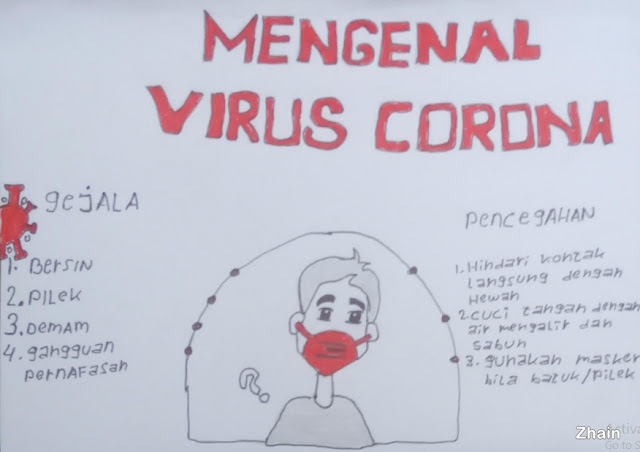 MENGENAL
VIRUS CORONA
gejALA
1. BERSIN
2. PILek
3. DeMAM
4. gangguan
perNAFasan
penceGAHAN
1. Hindari kontak
langsung dengan
Hewan
2. cuci tangan dengan
air mengalir dan
sabun
3. gunakan masker
bila batuk/Pilek
Zhain